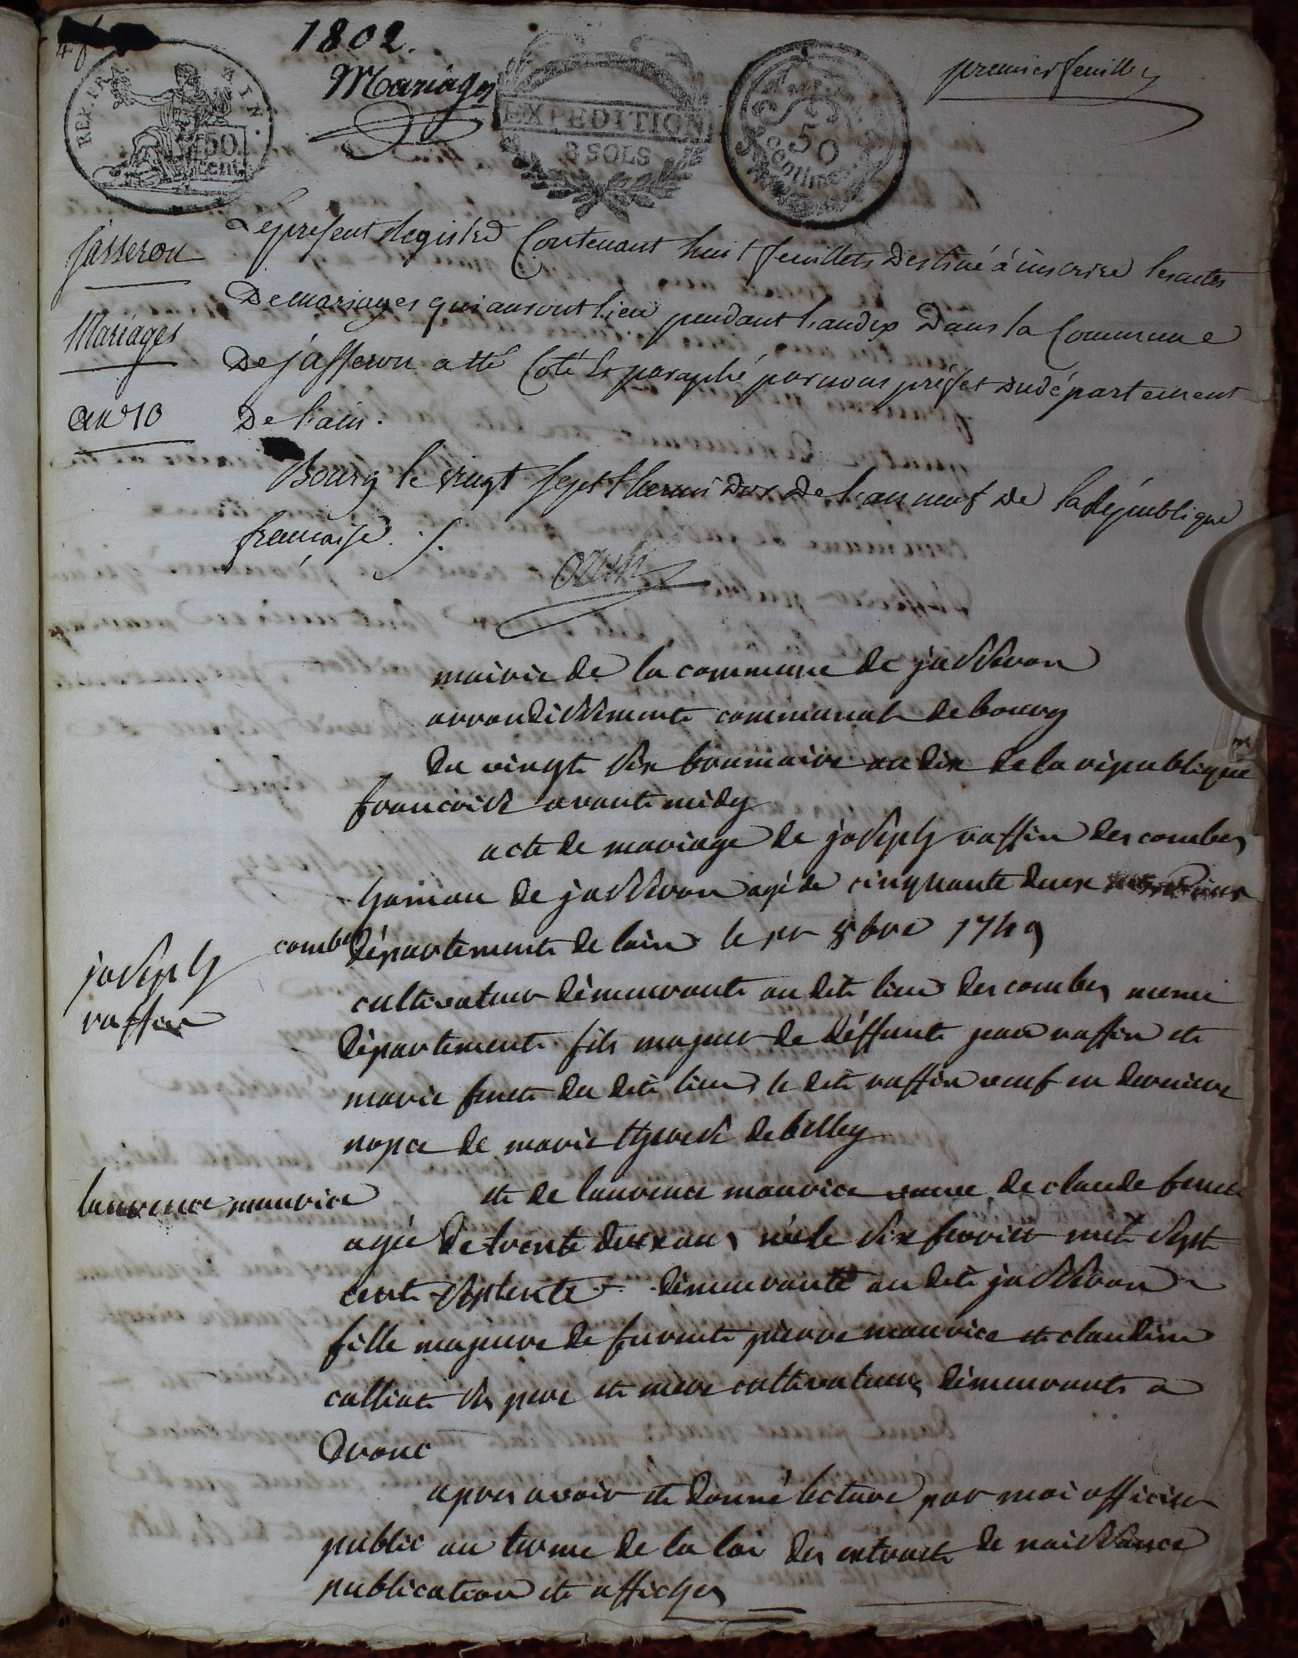 1802.
Mariages
premier feuillet
REP. FRA
50 cent.
EXPEDITION
3 SOLS
50
centimes
jasseron
Mariages
an 10
Le present Registre Contenant huit feuillets Destiné à inscrire les actes
De mariages qui auront lieu pendant l'an dix Dans la Commune
De jasseron a été Coté & paraphé par nous prefet du département
De l'ain.
Bourg le vingt sept thermidor De l'an neuf De la République
française ./.
mairie de la commune de jasseron
arrondissement communal de bourg
du vingt six brumaire an dix de la republique
francoise avant midy
acte de mariage de joseph raffin des combes
hamau de jasseron agé de cinquante deux
combes
département de lain le 1er 8bre 1749
joseph
raffin
cultivateur démeurant au dit lieu des combes meme
département fils majeur de déffunt jean raffin et
marie feret du dit lieu, le dit raffin veuf en derniere
nopce de marie therese debelley
laurence maurice
et de laurence maurice veuve de claude feret
agée de trente deux ans née le six fevrier mil sept
cent septente démeurante au dit jasseron
fille majeure de furent pierre maurice et claudine
calliat ses pere et mere cultivateurs démeurants a
drone
apres avoir et donné lecture par moi officier
public au terme de la loi des extraits de naissance
publication et affiches